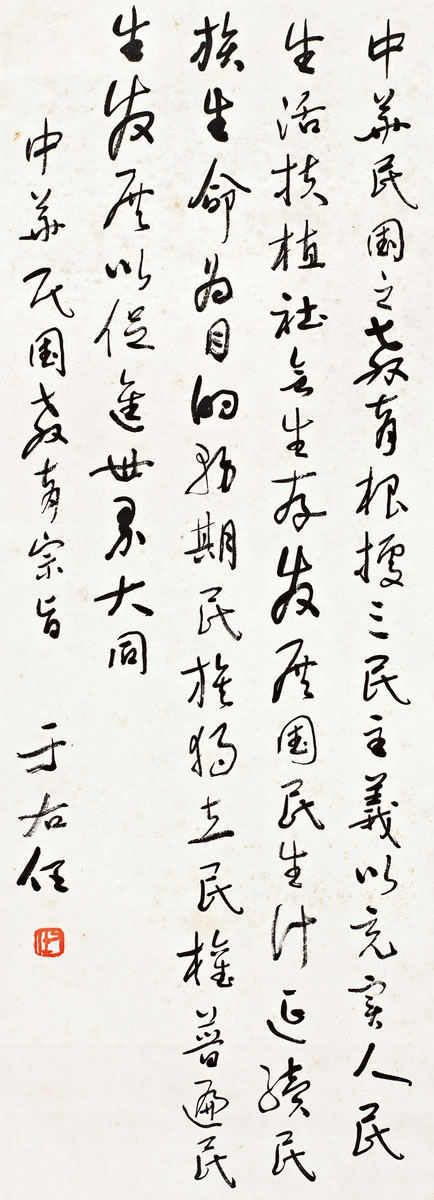 中華民國之教育根據三民主義以充實人民
生活扶植社會生存發展國民生計延續民
族生命為目的務期民族獨立民權普遍民
生發展以促進世界大同
中華民國教育宗旨 于右任